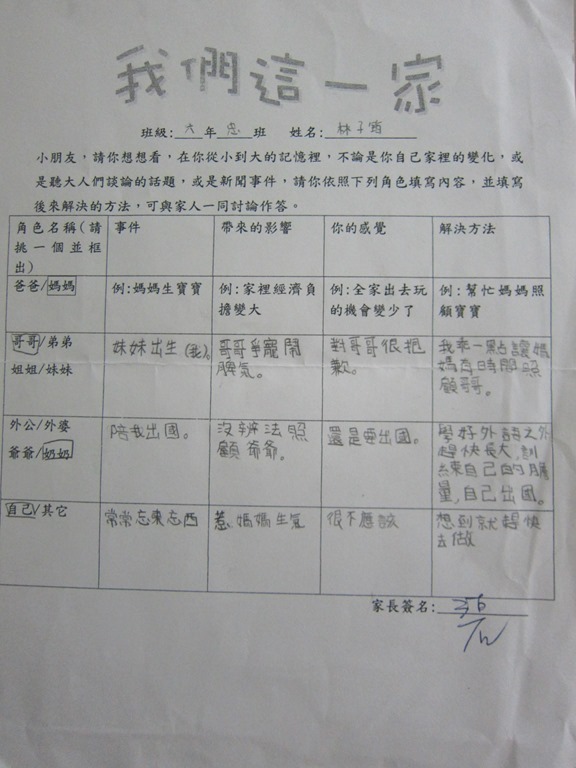 我們這一家
班級:六年忠班 姓名:林子
小朋友，請你想想看，在你從小到大的記憶裡，不論是你自己家裡的變化，或
是聽大人們談論的話題，或是新聞事件，請你依照下列角色填寫內容，並填寫
後來解決的方法，可與家人一同討論作答。
角色名稱(請
挑一個並框
出)
事件
帶來的影響
你的感覺
解決方法
爸爸/媽媽
例:媽媽生寶寶
例:家裡經濟負
擔變大
例:全家出去玩
的機會變少了
例:幫忙媽媽照
顧寶寶
哥哥/弟弟
姐姐/妹妹
妹妹出生(我)。
哥哥爭寵鬧
脾氣。
對哥哥很抱
歉。
我乖一點讓媽
媽有時間照
顧哥哥。
外公/外婆
爺爺/奶奶
陪我出國。
沒辨法照
顧爺爺。
還是要出國。
學好外語之外
趕快長大，訓
練自己的膽
量，自己出國。
自己/其它
常常忘東忘西
惹媽媽生氣
很不應該
想到就趕快
去做
家長簽名: